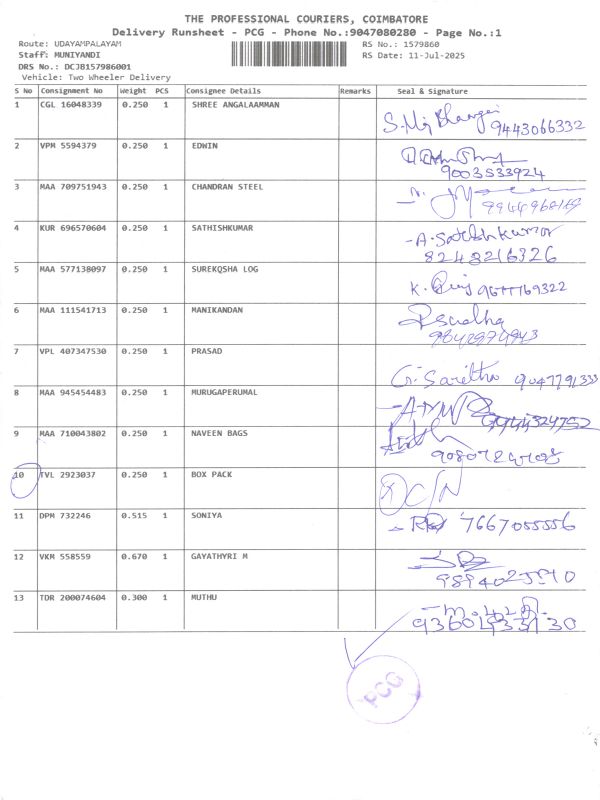 THE PROFESSIONAL COURIERS, COIMBATORE
Delivery Runsheet - PCG - Phone No.:9047080280 - Page No.:1
Route: UDAYAMPALAYAM RS No.: 1579860
Staff: MUNIYANDI RS Date: 11-Jul-2025
DRS No.: DCJ8157986001
Vehicle: Two Wheeler Delivery
S No Consignment No Weight PCS Consignee Details Remarks Seal & Signature
1 CGL 16048339 0.250 1 SHREE ANGALAAMMAN
9443066332
2 VPM 5594379 0.250 1 EDWIN
9003533924
3 MAA 709751943 0.250 1 CHANDRAN STEEL
4 KUR 696570604 0.250 1 SATHISHKUMAR
A. Satishkumar
8248216326
5 MAA 577138097 0.250 1 SUREKQSHA LOG
K. 9677769322
6 MAA 111541713 0.250 1 MANIKANDAN
7 VPL 407347530 0.250 1 PRASAD
G. Saritha 9047791333
8 MAA 945454483 0.250 1 MURUGAPERUMAL
9944324752
9 MAA 710043802 0.250 1 NAVEEN BAGS
10 TVL 2923037 0.250 1 BOX PACK
D C/N
11 DPM 732246 0.515 1 SONIYA
7667055556
12 VKM 558559 0.670 1 GAYATHYRI M
13 TDR 200074604 0.300 1 MUTHU
PCG